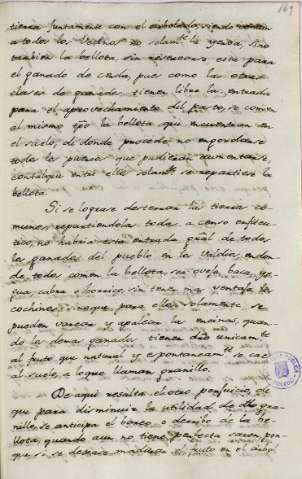 169
tierra juntamente con el arbolado, siendo comun
a todos los Vecinos no solamte. la yerba, sino
tambien la bellota, sin reservarse esta para
el ganado de cerda, pues como las otras
clases de ganados tienen libre la entrada
para el aprovechamiento del pasto, se comen
al mismo tpo. la bellota que encuentran en
el suelo, de donde procede no engordarse
todos los puercos que pudieran
con tal que entre ellos solamte. se repartiera la
bellota.
Si se lograse desterrar las tierras co-
munes, repartiendolas todas a censo enfiteu-
tico, no habria esta entrada gral. de todos
los ganados del pueblo en los valdios, en don-
de todos comen la bellota, sea oveja, baca, ye-
gua, cabra o borrico, sin tener mas ventaja los
cochinos, sino que para ellos solamente se
pueden varear y apalear las encinas, quan-
do los demas ganados tienen dro. unicamte.
al fruto que natural y espontaneamte. se cae
al suelo, a lo que llaman granillo.
De aqui resulta el otro perjuicio, de
que para disminuir la utilidad de este gra-
nillo, se anticipa el bareo o derribo de la be-
llota, quando aun no tiene perfecta sazon, por-
que si se dexase madurar el fruto en el arbol